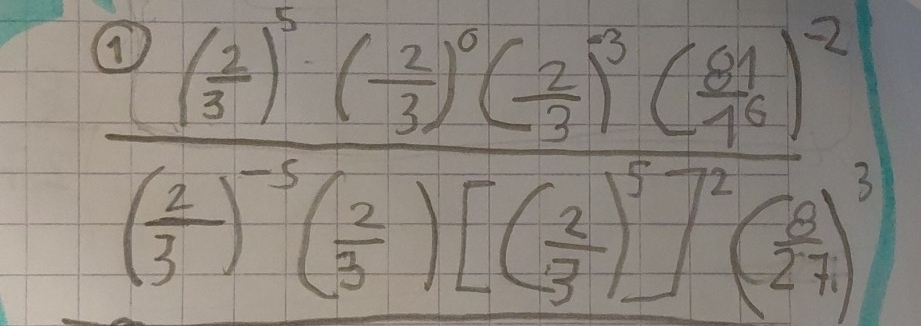 ① (2/3)^5 · (-2/3)^0 (2/3)^-3 (81/16)^-2
(2/3)^-5 (2/3) [(2/3)^5]^2 (8/27)^3